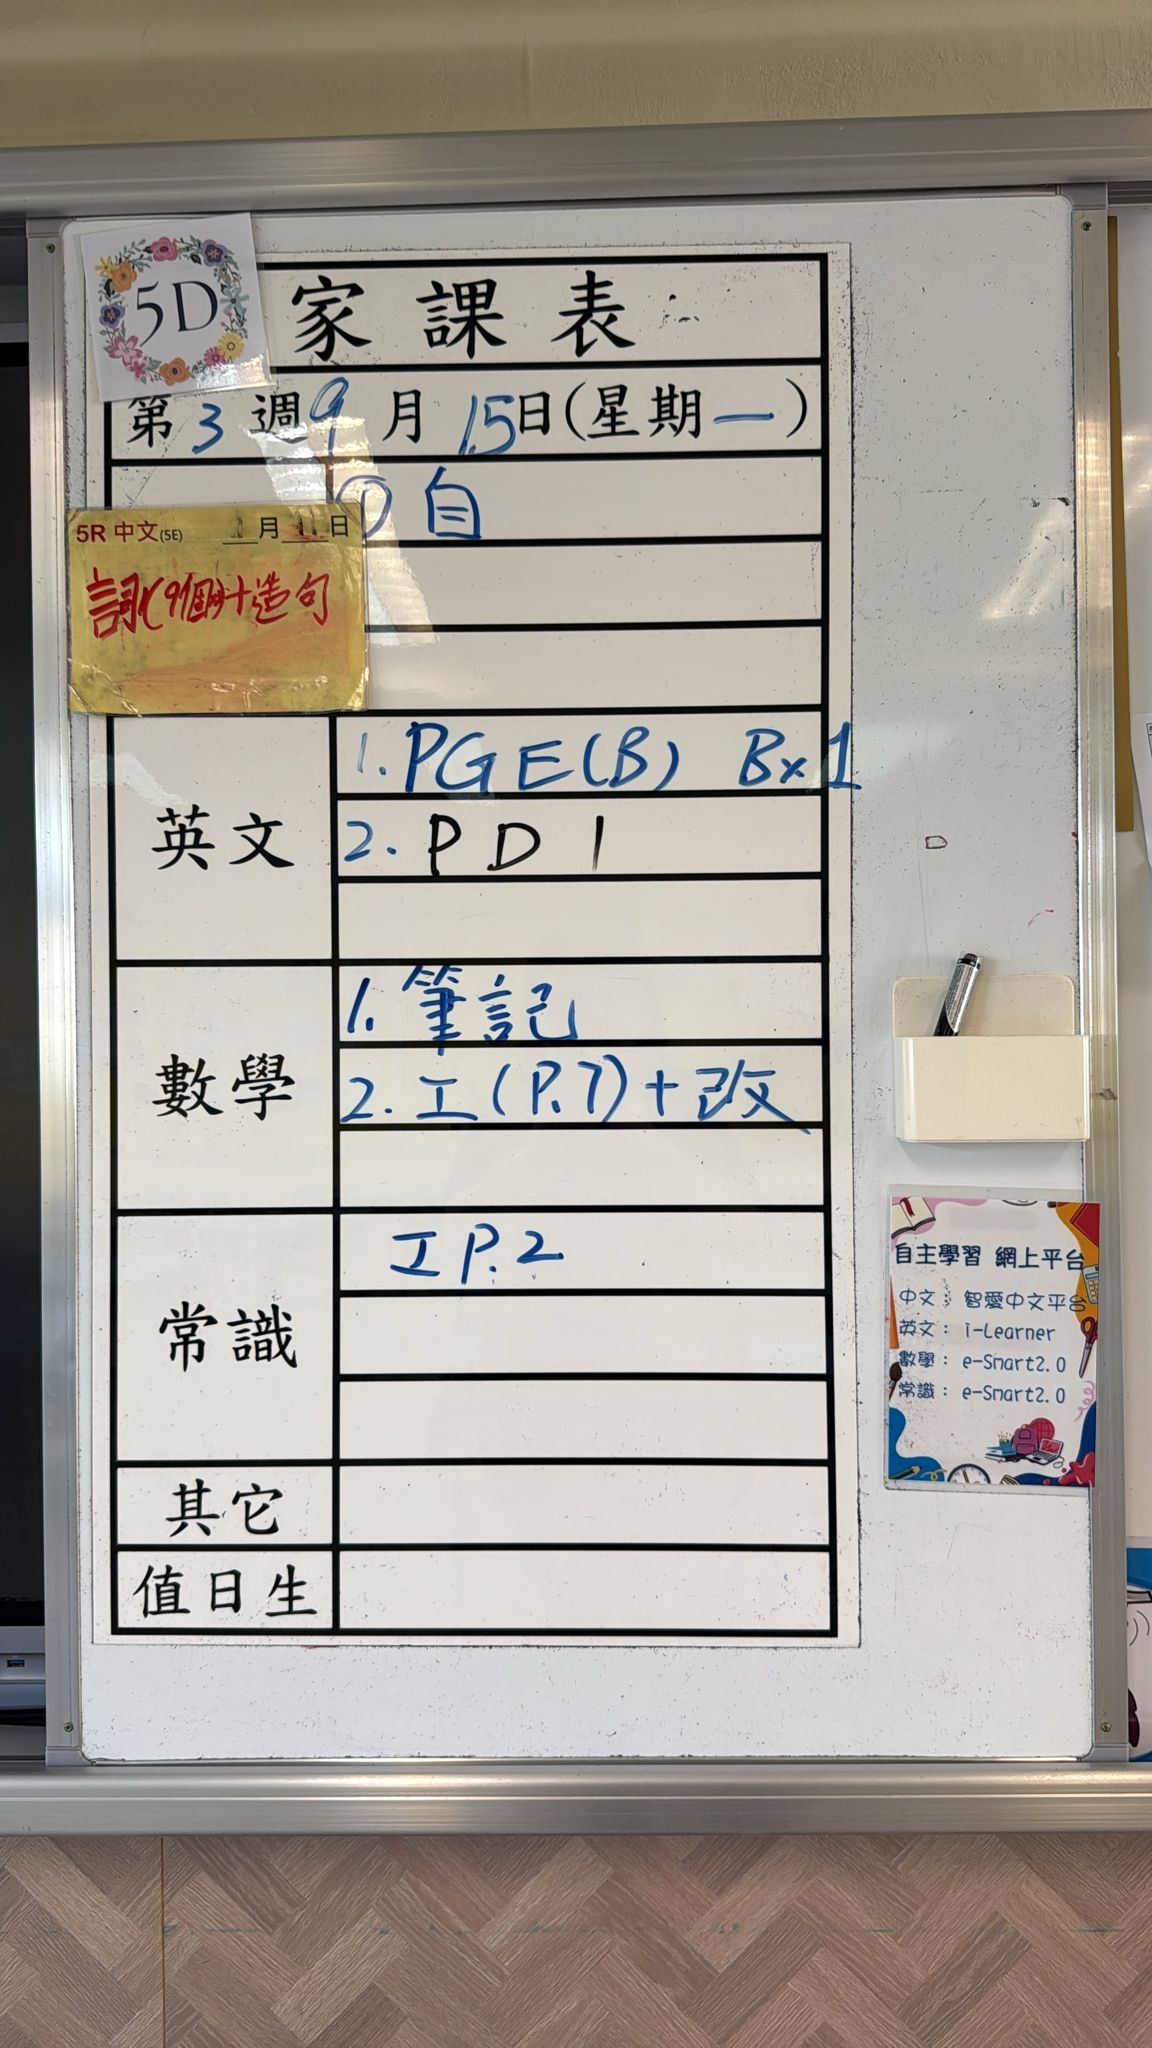 5D
家課表
第3週9月15日(星期一)
① 自
5R 中文(5E) 月 日
詞(9個)+造句
英文
1. PGE(B) Bx1
2. PD1
數學
1. 筆記
2. 工(P.7)+改
常識
工P.2
其它
值日生
自主學習 網上平台
中文： 智愛中文平台
英文： i-Learner
數學： e-Smart2.0
常識： e-Smart2.0